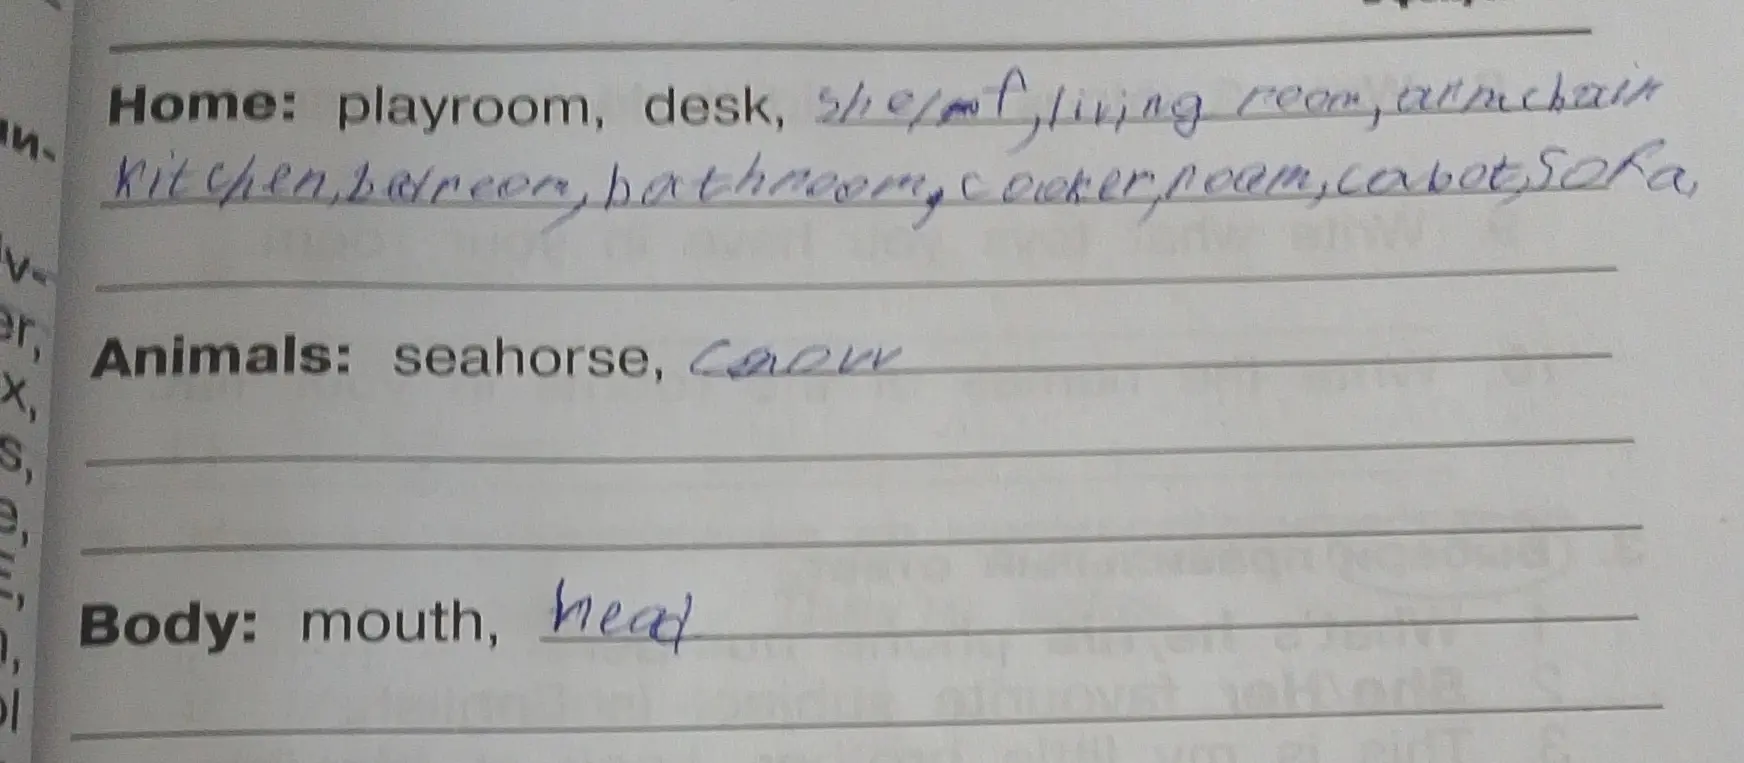 Home: playroom, desk, shelf, living room, armchair
kitchen, balroom, bathroom, cooker, room, cabot, Sofa,
Animals: seahorse,
Body: mouth, head